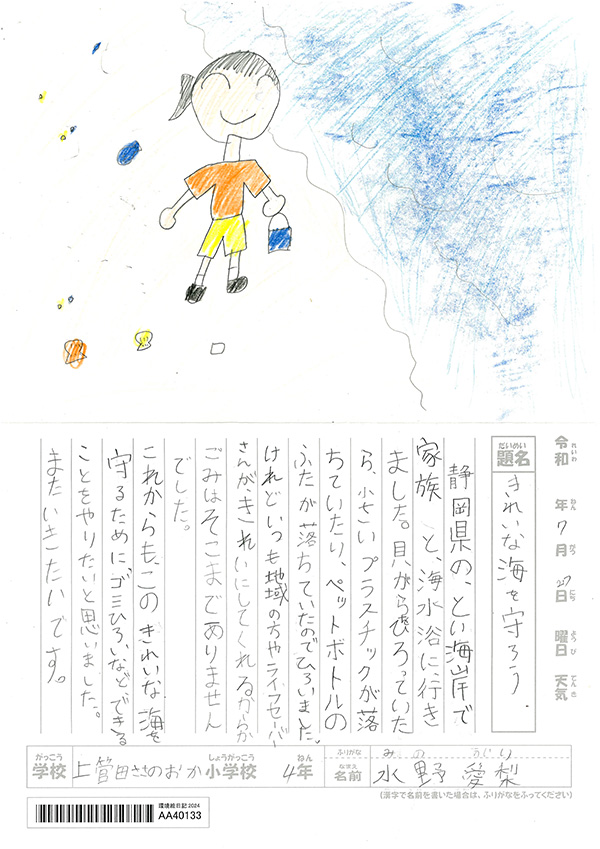 れいわ
令和 ねん年 7 がつ月 27 にち日 ようび曜日 てんき天気
だいめい
題名
きれいな海を守ろう.
静岡県の、とい海岸で
家族 と、海水浴に行き
ました。貝がらひろっていた
ら、小さい プラスチックが落
ちていたり、ペットボトルの
ふたが落ちていたのでひろいました。
けれどいつも地域の方やライフセーバー
さんが、きれいにしてくれるからか
ごみはそこまでありません
でした。
これからも、この きれいな 海を
守るために、ゴミひろいなど、できる
ことをやりたいと思いました。
またいきたいです。
がっこう しょうがっこう ねん
学校 上菅田ささのおか小学校 4年
ふりがな みの
なまえ
名前 水野 愛梨
(漢字で名前を書いた場合は、ふりがなをふってください)
環境絵日記 2024
AA40133